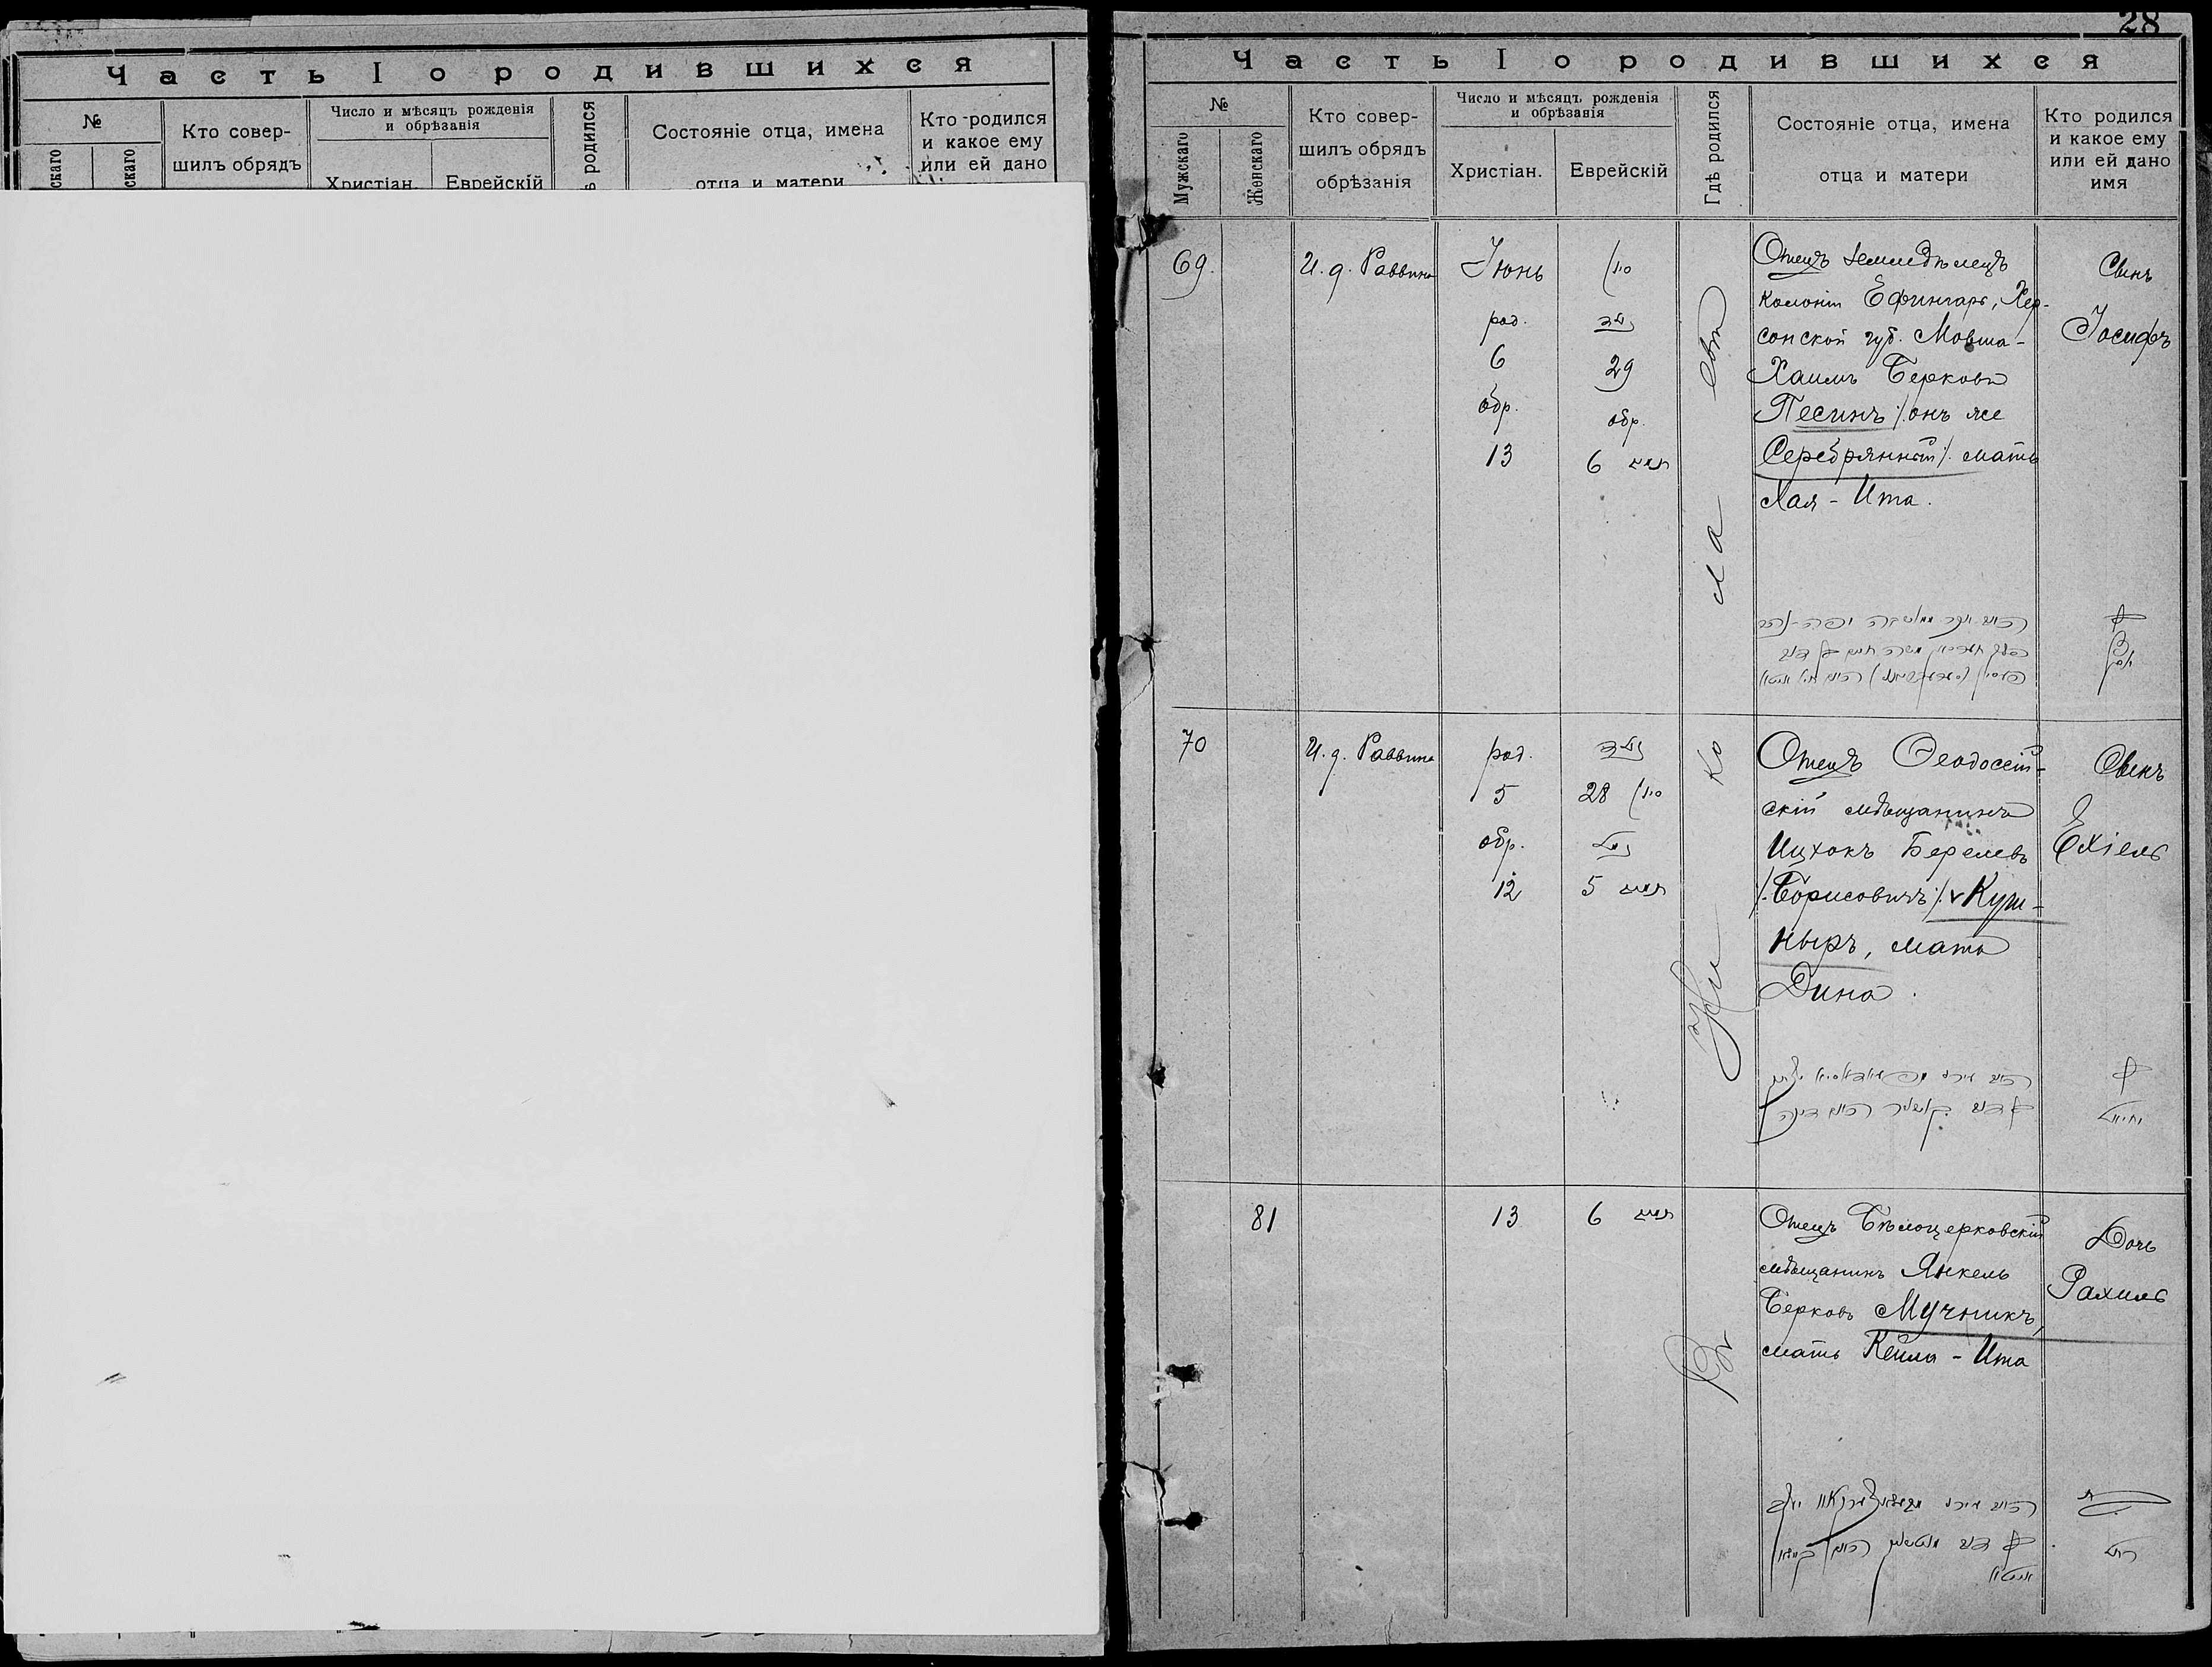 Часть I о родившихся
№
скаго
скаго
Кто совер-
шилъ обрядъ
Число и мѣсяцъ рожденія
и обрѣзанія
Христіан.
Еврейскій
родился
Состояніе отца, имена
отца и матери
Кто родился
и какое ему
или ей дано
28
Часть I о родившихся
№
Мужскаго
Женскаго
Кто совер-
шилъ обрядъ
обрѣзанія
Число и мѣсяцъ рожденія
и обрѣзанія
Христіан.
Еврейскій
Гдѣ родился
Состояніе отца, имена
отца и матери
Кто родился
и какое ему
или ей дано
имя
69.
И. д. Раввина
Іюнь
род.
6
обр.
13
סיון
נולד
29
обр.
6 תמוז
Отецъ земледѣлецъ
колоніи Ефингаръ, Хер-
сонской губ. Мовша-
Хаимъ Берковъ
Песинъ /:онъ же
Серебрянный/: мать
Хая - Ита.
Сынъ
Іосифъ
בן
יוסף
70
И. д. Раввина
род.
5
обр.
12
נולד
28 סיון
נמול
5 תמוז
Отецъ Ѳеодосій-
скій мѣщанинъ
Ицхокъ Берелевъ
/:Борисовичъ:/ Куш-
ныръ, мать
Дина.
Сынъ
Ехіель
בן
יחיאל
81
13
6 תמוז
Отецъ Бѣлоцерковскій
мѣщанинъ Янкель
Берковъ Мучникъ,
мать Кейла - Ита
Дочь
Рахиль
רחל